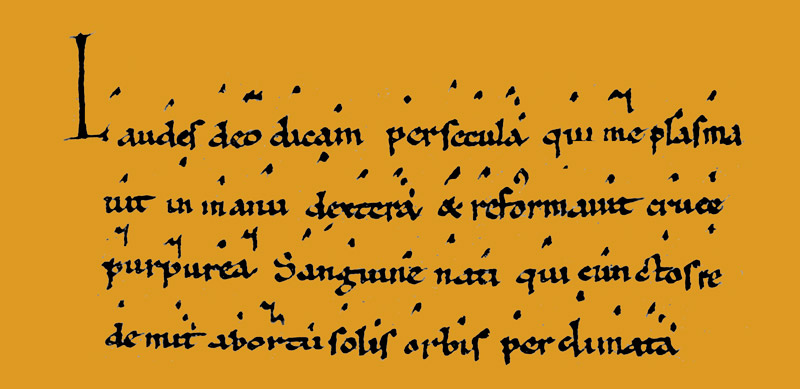 Laudes deo dicam per secula qui me plasma
uit in manu dextera & reformauit cruce
purpurea Sanguine nati qui cunctos re
demit ab ortu solis orbis per climata